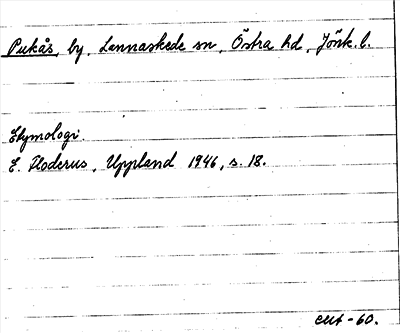 Pukås, by, Lannaskede sn, Östra hd, Jönk. l.
Etymologi.
E. Floderus, Uppland 1946, s. 18.
-60.